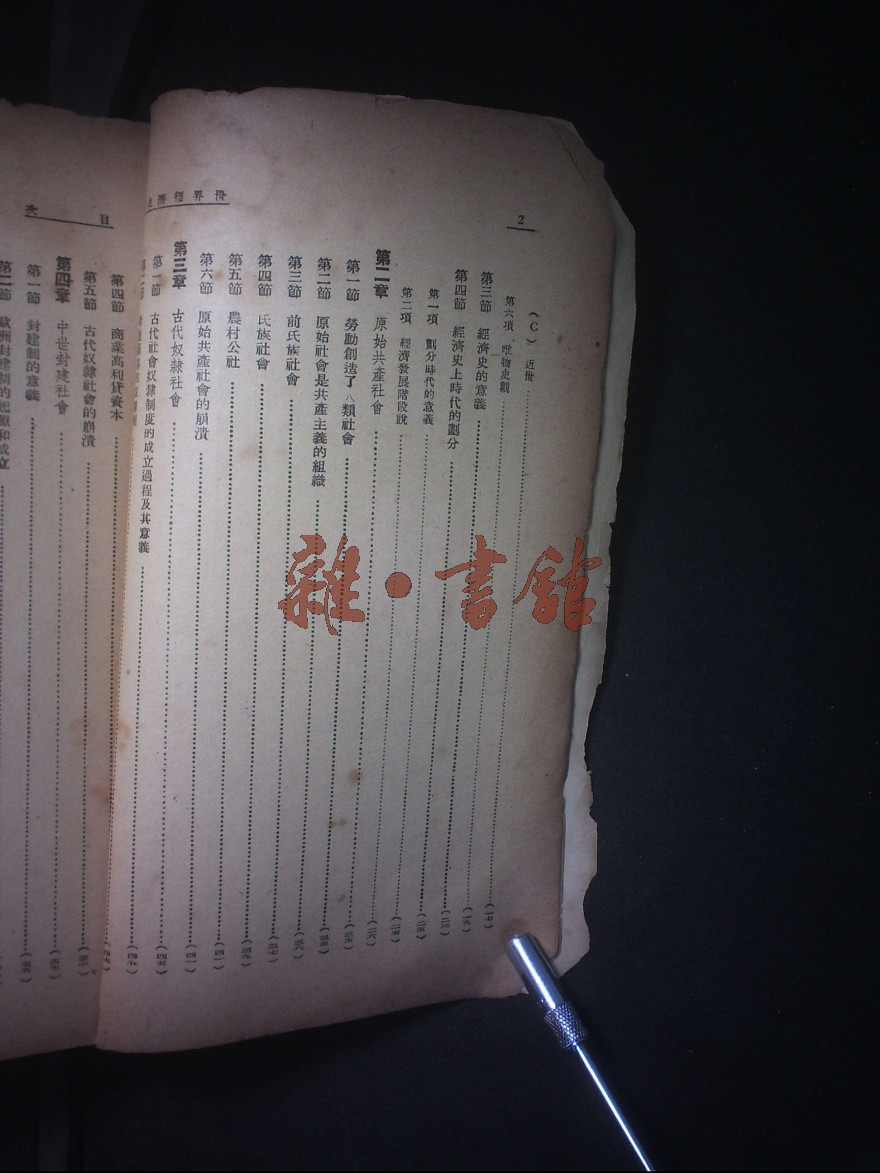 2
世界經濟史
(C) 近世
第六項 唯物史觀
第三節 經濟史的意義
第四節 經濟史上時代的劃分
第一項 劃分時代的意義
第二項 經濟發展階段說
第二章 原始共產社會
第一節 勞動創造了人類社會
第二節 原始社會是共產主義的組織
第三節 前氏族社會
第四節 氏族社會
第五節 農村公社
第六節 原始共產社會的崩潰
第三章 古代奴隸社會
第一節 古代社會奴隸制度的成立過程及其意義
目次
第四節 商業高利貸資本
第五節 古代奴隸社會的崩潰
第四章 中世封建社會
第一節 封建制的意義
第二節 歐洲封建制的起源和成立
雜·書館